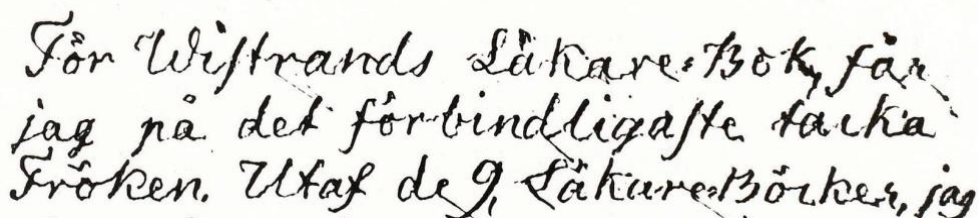 För Wistrands Läkare-Bok, får
jag på det förbindligaste tacka
Fröken. Utaf de 9, Läkare-Böcker, jag